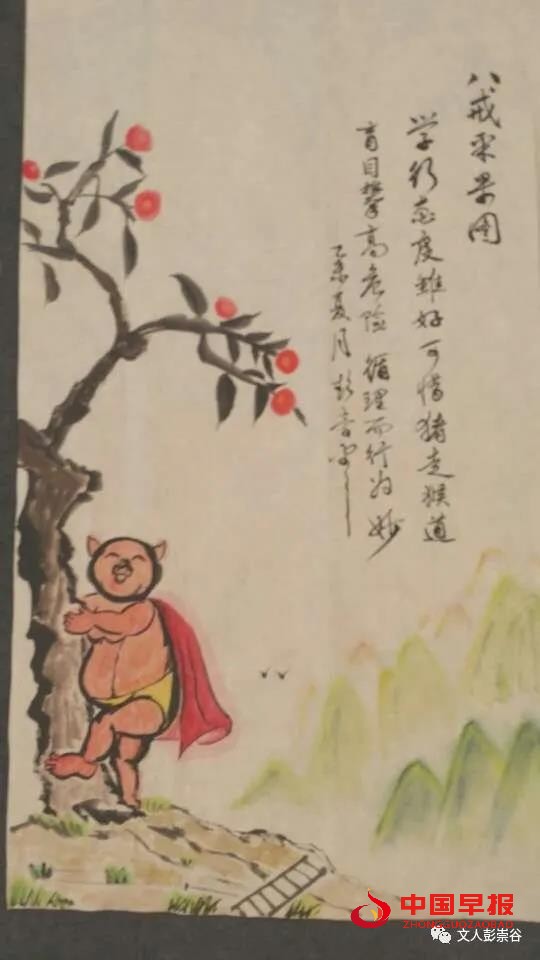 八戒采果图
学行态度雖好可惜猪走猴道
盲目攀高危险循理而行为妙
乙未夏月彭崇谷
中国早报
ZHONGGUOZAOBAO
文人彭崇谷